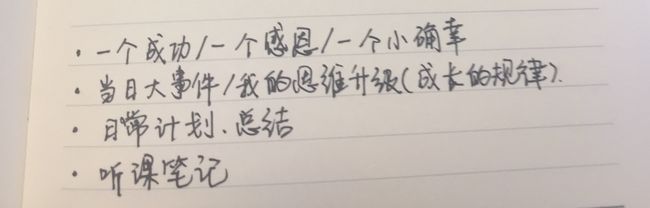 · 一个成功/一个感恩/一个小确幸
· 当日大事件/我的思维升级(成长的规律).
· 日常计划、总结
· 听课笔记